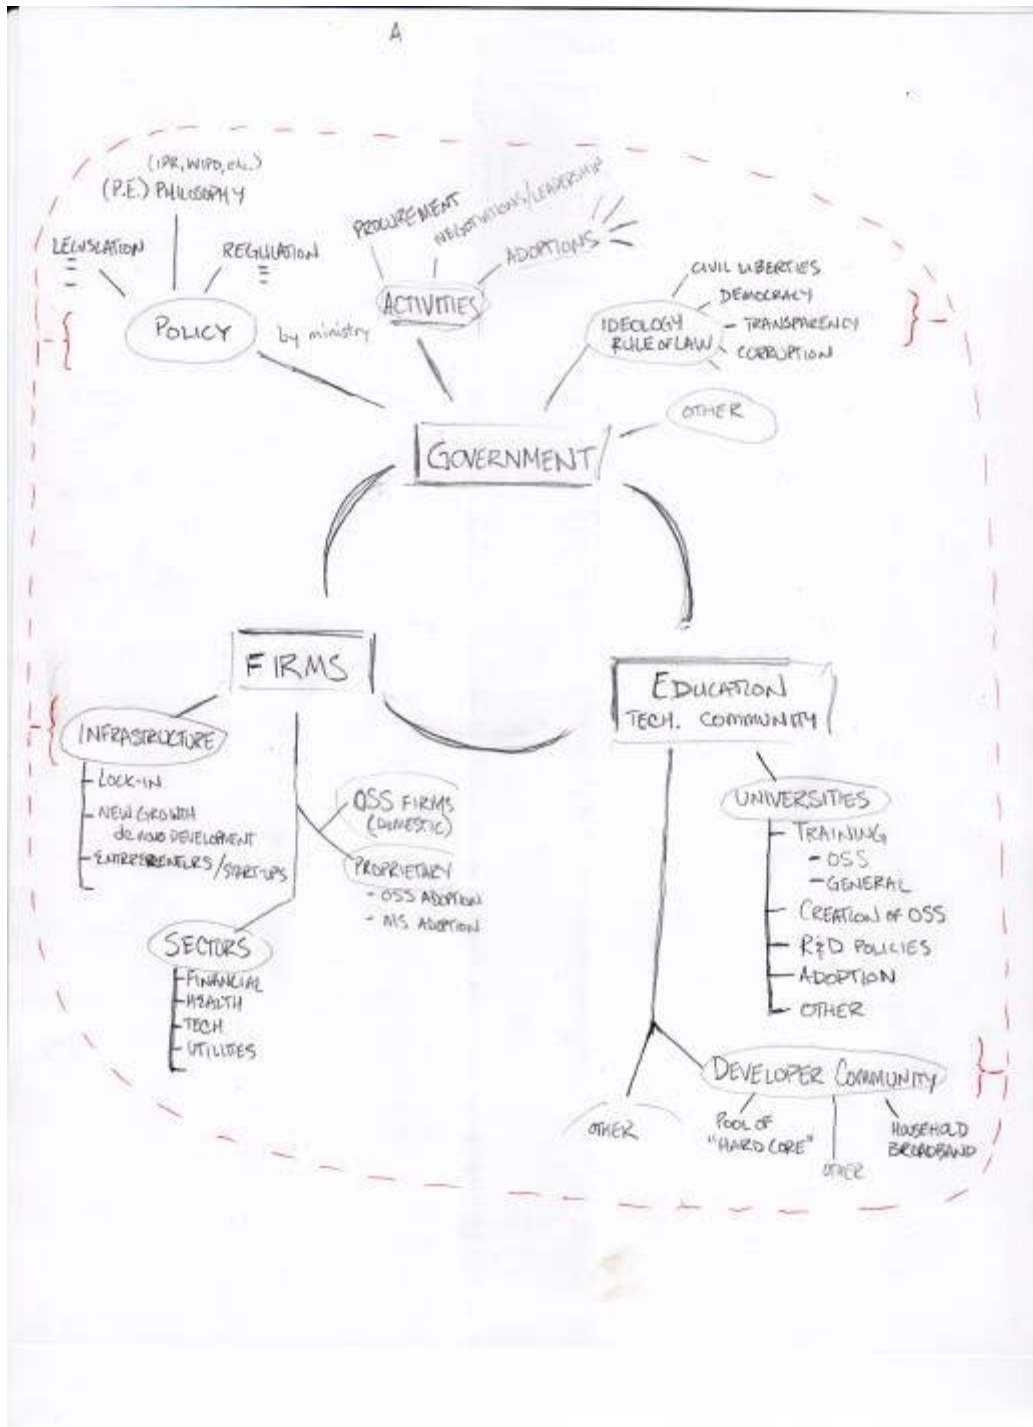 A
(IPR, WIPO, etc.)
(P.E.) PHILOSOPHY
LEGISLATION
REGULATION
POLICY
by ministry
PROCUREMENT
NEGOTIATIONS/LEADERSHIP
ADOPTIONS
ACTIVITIES
CIVIL LIBERTIES
DEMOCRACY
- TRANSPARENCY
CORRUPTION
IDEOLOGY
RULE OF LAW
OTHER
GOVERNMENT
FIRMS
INFRASTRUCTURE
LOCK-IN
NEW GROWTH
de novo DEVELOPMENT
ENTREPRENEURS/START-UPS
OSS FIRMS
(DOMESTIC)
PROPRIETARY
- OSS ADOPTION
- MS ADOPTION
SECTORS
FINANCIAL
HEALTH
TECH
UTILITIES
EDUCATION
TECH. COMMUNITY
UNIVERSITIES
TRAINING
- OSS
- GENERAL
CREATION OF OSS
R&D POLICIES
ADOPTION
OTHER
DEVELOPER COMMUNITY
OTHER
POOL OF
"HARD CORE"
OTHER
HOUSEHOLD
BROADBAND